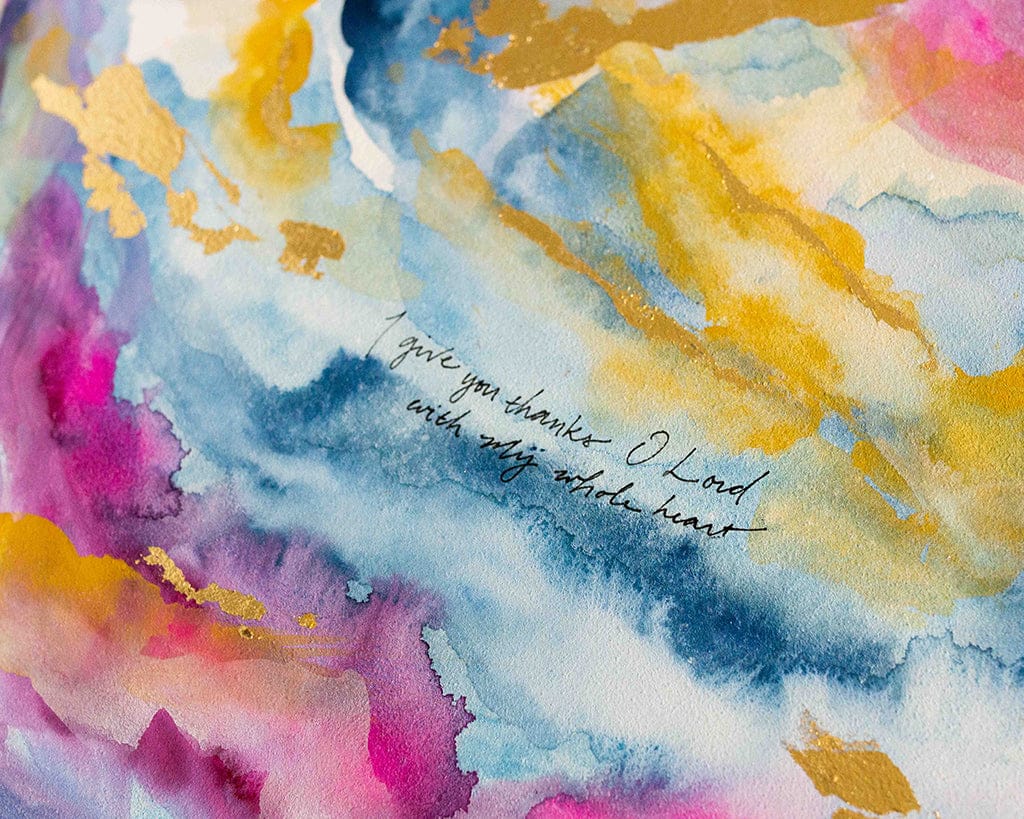 I give you thanks O Lord
with my whole heart